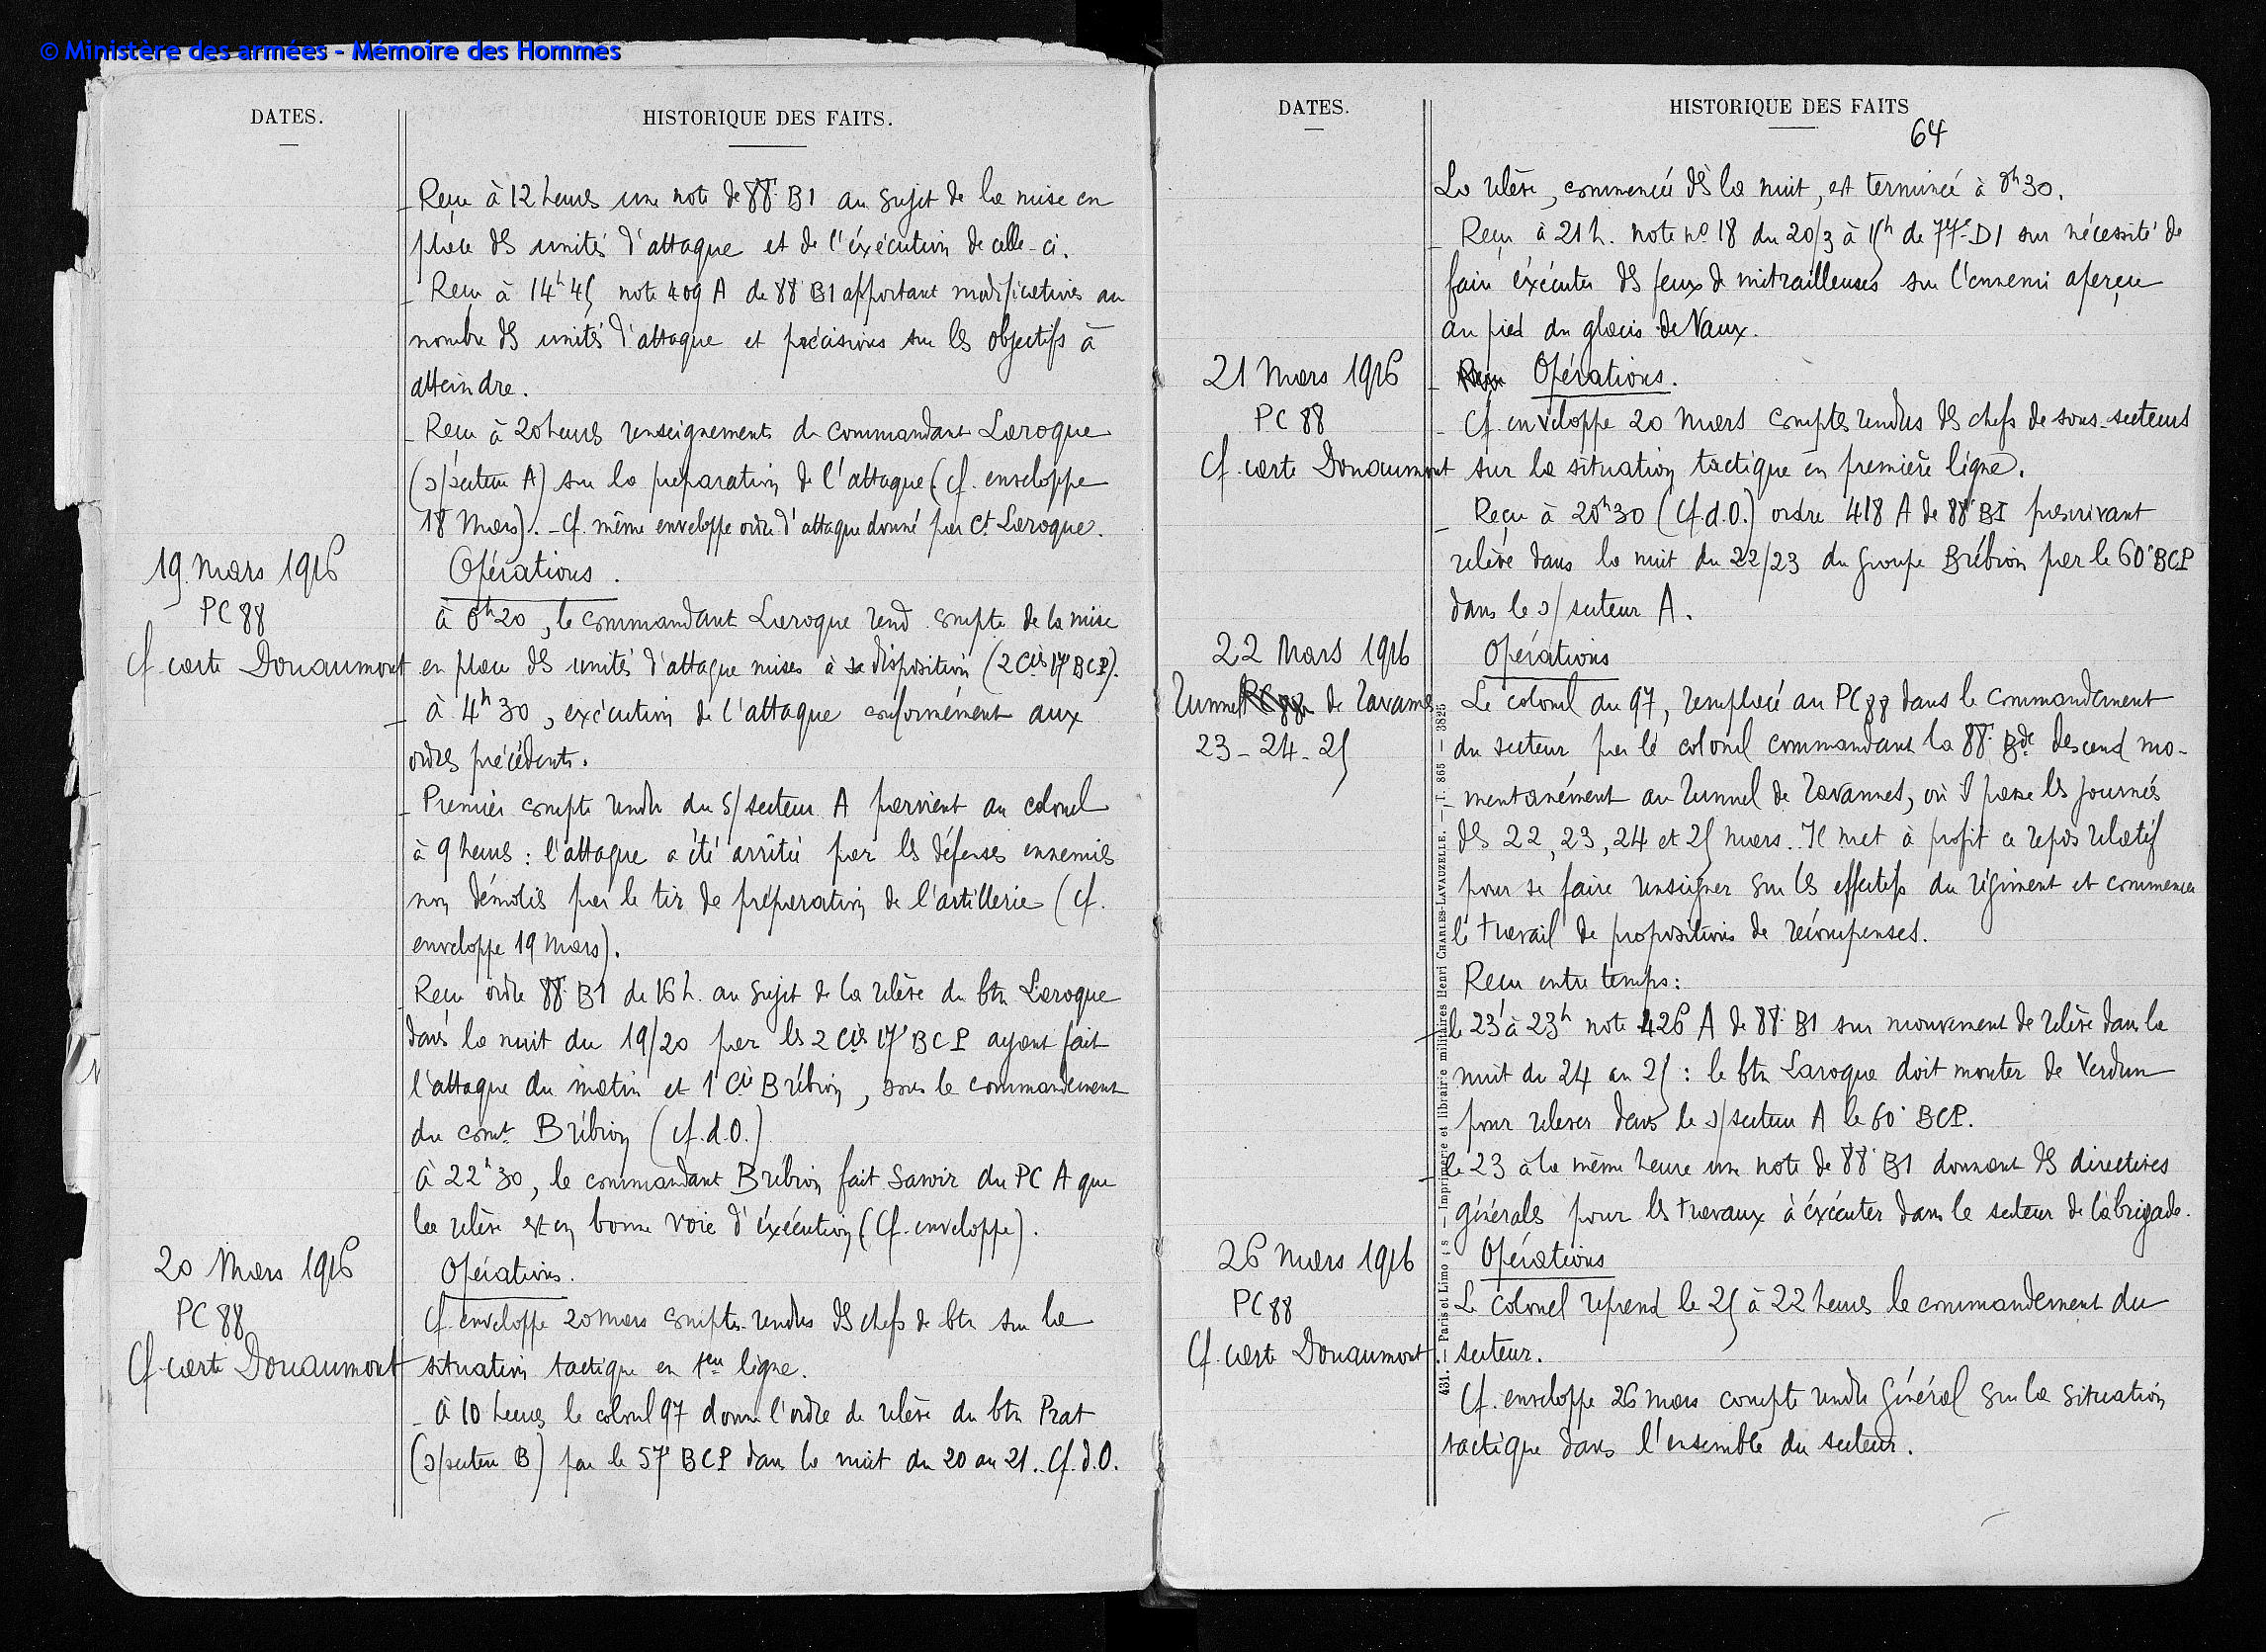 © Ministère des armées - Mémoire des Hommes
DATES.
HISTORIQUE DES FAITS.
- Reçu à 12 heures une note de 88e BI au sujet de la mise en
place des unités d'attaque et de l'éxécution de celle-ci.
- Reçu à 14h45 note 409 A de 88e BI apportant modifications au
nombre des unités d'attaque et précisions sur les objectifs à
atteindre.
- Reçu à 20 heures renseignements du commandant Laroque
(s/secteur A) sur la préparation de l'attaque (cf. enveloppe
18 Mars). - Cf. même enveloppe ordre d'attaque donné par Ct Laroque.
19 Mars 1916
Opérations.
PC 88
à 0h20, le commandant Laroque rend compte de la mise
Cf carte Douaumont
en place des unités d'attaque mises à sa disposition (2 Cies 17e BCP).
- à 4h30, exécution de l'attaque conformément aux
ordres précédents.
- Premier compte rendu du s/secteur A parvient au colonel
à 9 heures : l'attaque a été arrêtée par les défenses ennemies
non démolies par le tir de préparation de l'artillerie (cf.
enveloppe 19 Mars).
- Reçu ordre 88e BI de 16h. au sujet de la relève du btn Laroque
dans la nuit du 19/20 par les 2 Cies 17e BCP ayant fait
l'attaque du matin et 1 Cie Brébion, sous le commandement
du comt Brébion (cf. d. O.)
- à 22h30, le commandant Brébion fait savoir du PC A que
la relève est en bonne voie d'éxécution (Cf. enveloppe).
20 Mars 1916
Opérations.
PC 88
Cf. enveloppe 20 mars comptes-rendus des chefs de btn sur la
Cf carte Douaumont
situation tactique en 1ère ligne.
- à 10 heures le colonel 97 donne l'ordre de relève du btn Prat
(s/secteur B) par le 57e BCP dans la nuit du 20 au 21. Cf. d. O.
DATES.
HISTORIQUE DES FAITS
64
La relève, commencée dès la nuit, est terminée à 8h30.
- Reçu à 21 h. note no 18 du 20/3 à 15h de 77e DI sur nécessité de
faire éxécuter des feux de mitrailleuses sur l'ennemi aperçu
au pied du glacis de Vaux.
21 Mars 1916
- Reçu Opérations.
PC 88
- Cf. enveloppe 20 Mars comptes rendus des chefs de sous-secteurs
Cf. carte Douaumont
sur la situation tactique en première ligne.
- Reçu à 20h30 (Cf. d. O.) ordre 418 A de 88e BI prescrivant
relève dans la nuit du 22/23 du groupe Brébion par le 60e BCP
dans le s/secteur A.
22 Mars 1916
Opérations
Tunnel PC 88 de Tavannes
Le colonel du 97, remplacé au PC 88 dans le commandement
23 - 24 - 25
du secteur par le colonel commandant la 88e Bde descend mo-
mentanément au Tunnel de Tavannes, où il passe les journées
des 22, 23, 24 et 25 mars. Il met à profit ce repos relatif
pour se faire renseigner sur les effectifs du régiment et commencer
le travail de propositions de récompenses.
Reçu entre temps :
- le 23 à 23h note 426 A de 88e BI sur mouvement de relève dans la
nuit du 24 au 25 : le btn Laroque doit monter de Verdun
pour relever dans le s/secteur A le 60e BCP.
- le 23 à la même heure une note de 88e BI donnant des directives
générales pour les travaux à éxécuter dans le secteur de la brigade.
26 Mars 1916
Opérations
PC 88
Le colonel reprend le 25 à 22 heures le commandement du
Cf. carte Douaumont
secteur.
Cf. enveloppe 26 mars compte rendu général sur la situation
tactique dans l'ensemble du secteur.
431. — Paris et Limoges — Imprimerie et librairie militaires Henri CHARLES-LAVAUZELLE. — T. 865 — 3825